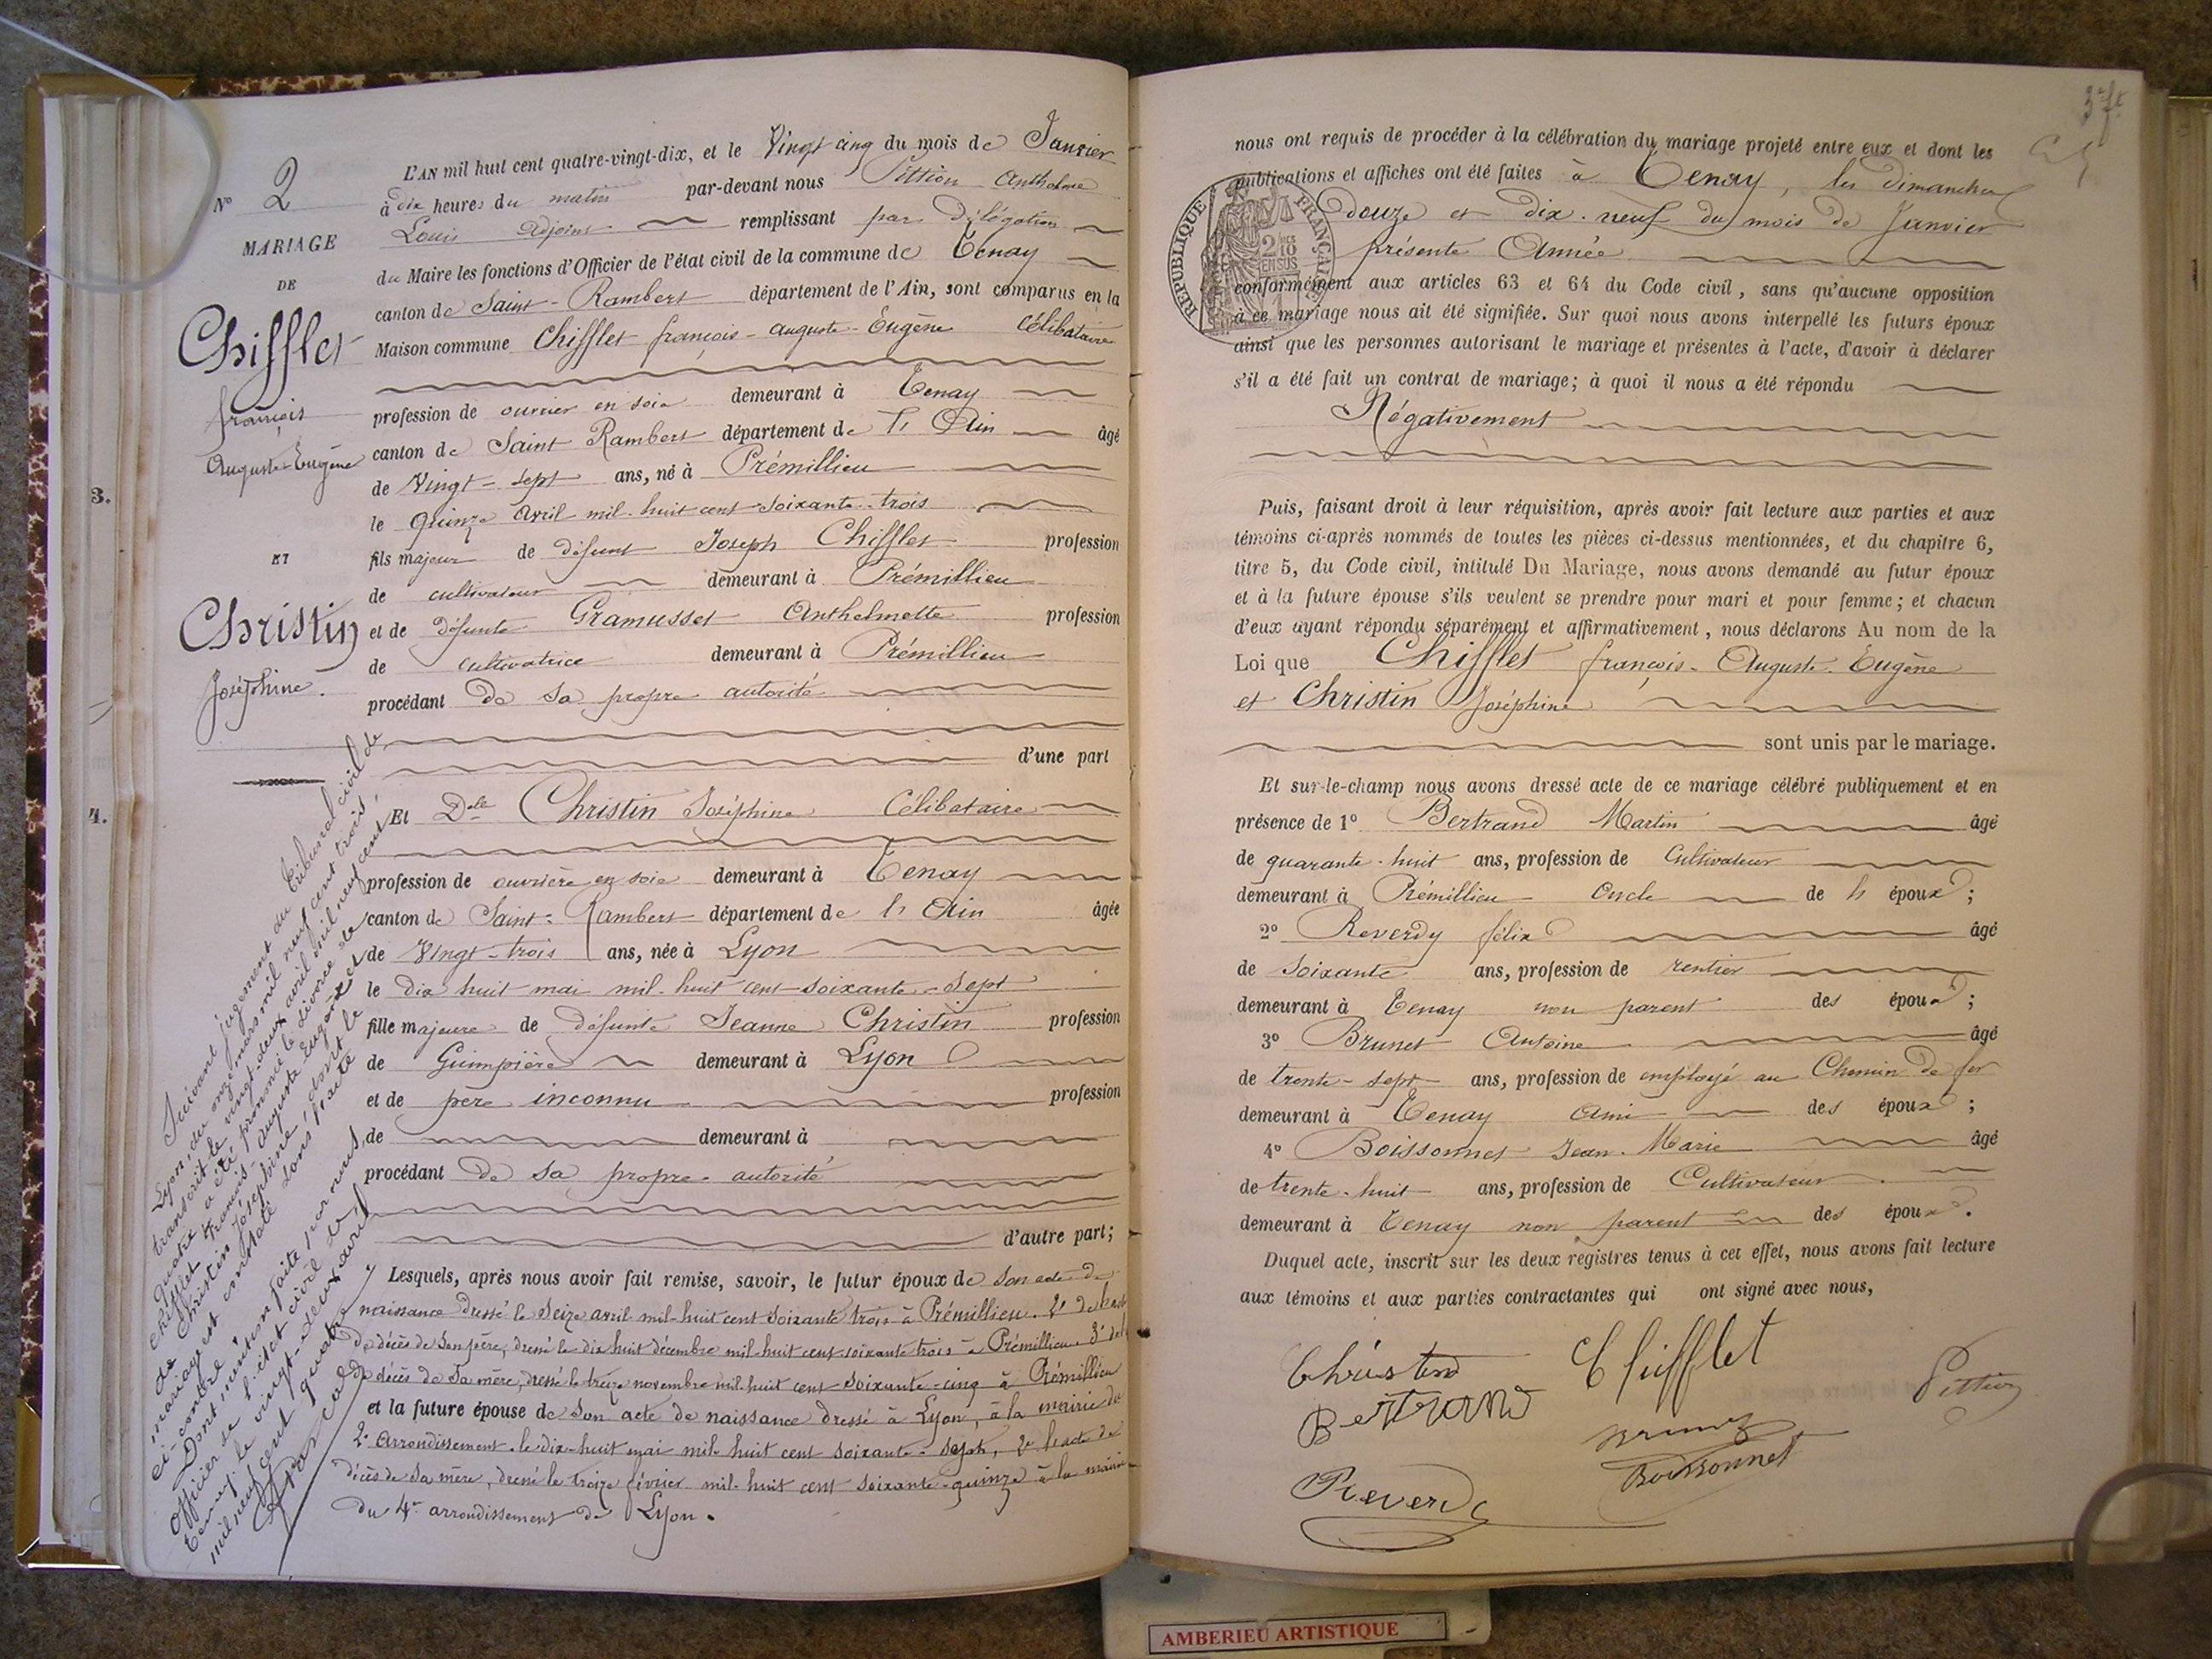 N° 2
MARIAGE
DE
Chifflet
françois
Auguste-Eugène
ET
Christin
Joséphine.
3.
4.
L'AN mil huit cent quatre-vingt-dix, et le Vingt cinq du mois de Janvier
à dix heures du matin par-devant nous Pittion Anthelme
Louis adjoint remplissant par délégation
du Maire les fonctions d'Officier de l'état civil de la commune de Tenay
canton de Saint-Rambert département de l'Ain, sont comparus en la
Maison commune Chifflet françois-auguste-Eugène Célibataire
profession de ouvrier en soie demeurant à Tenay
canton de Saint Rambert département de l'Ain âgé
de Vingt-sept ans, né à Prémillieu
le Quinze avril mil-huit cent-soixante-trois
fils majeur de défunt Joseph Chifflet profession
de cultivateur demeurant à Prémillieu
et de défunte Gramusset Anthelmette profession
de cultivatrice demeurant à Prémillieu
procédant de sa propre autorité
d'une part
Et Delle Christin Joséphine Célibataire
profession de ouvrière en soie demeurant à Tenay
canton de Saint-Rambert département de l'Ain âgée
de Vingt-trois ans, née à Lyon
le dix huit mai mil-huit cent-soixante-sept
fille majeure de défunte Jeanne Christin profession
de Guimpière demeurant à Lyon
et de père inconnu profession
de demeurant à
procédant de sa propre autorité
d'autre part;
Lesquels, après nous avoir fait remise, savoir, le futur époux de son acte de
naissance dressé le Seize avril mil-huit cent soixante trois à Prémillieu. 2° de l'acte
de décès de son père, dressé le dix huit décembre mil-huit cent-soixante trois à Prémillieu. 3° de l'
de décès de sa mère, dressé le treize novembre mil-huit cent-soixante-cinq à Prémillieu
et la future épouse de son acte de naissance dressé à Lyon, à la mairie du
2e Arrondissement le dix-huit mai mil-huit cent soixante-sept, 2e l'acte de
décès de sa mère, dressé le treize février mil-huit cent soixante-quinze à la mairie
du 4e arrondissement de Lyon.
Suivant jugement du tribunal civil de
Lyon, du onze mars mil neuf cent trois,
transcrit le vingt-deux avril mil neuf cent
quatre a été prononcé le divorce de
Chifflet François, Auguste Eugène et
de Christin Joséphine, dont le
mariage est constaté
ci-contre
Dont mention faite par nous,
officier de l'état civil de
Tenay, le vingt-deux avril
mil neuf cent quatre
37
nous ont requis de procéder à la célébration du mariage projeté entre eux et dont les
publications et affiches ont été faites à Tenay, les dimanches
douze et dix-neuf du mois de Janvier
présente Année
conformément aux articles 63 et 64 du Code civil, sans qu'aucune opposition
à ce mariage nous ait été signifiée. Sur quoi nous avons interpellé les futurs époux
ainsi que les personnes autorisant le mariage et présentes à l'acte, d'avoir à déclarer
s'il a été fait un contrat de mariage; à quoi il nous a été répondu
Négativement
RÉPUBLIQUE FRANÇAISE
2/10 EN SUS
Puis, faisant droit à leur réquisition, après avoir fait lecture aux parties et aux
témoins ci-après nommés de toutes les pièces ci-dessus mentionnées, et du chapitre 6,
titre 5, du Code civil, intitulé Du Mariage, nous avons demandé au futur époux
et à la future épouse s'ils veulent se prendre pour mari et pour femme; et chacun
d'eux ayant répondu séparément et affirmativement, nous déclarons Au nom de la
Loi que Chifflet françois-Auguste-Eugène
et Christin Joséphine
sont unis par le mariage.
Et sur-le-champ nous avons dressé acte de ce mariage célébré publiquement et en
présence de 1° Bertrand Martin âgé
de quarante-huit ans, profession de Cultivateur
demeurant à Prémillieu oncle de l' époux;
2° Reverdy félix âgé
de soixante ans, profession de rentier
demeurant à Tenay non parent des époux;
3° Brunet Antoine âgé
de trente-sept ans, profession de employé au Chemin de fer
demeurant à Tenay ami des époux;
4° Boissonnet Jean-Marie âgé
de trente-huit ans, profession de Cultivateur
demeurant à Tenay non parent des époux.
Duquel acte, inscrit sur les deux registres tenus à cet effet, nous avons fait lecture
aux témoins et aux parties contractantes qui ont signé avec nous,
Christin Chifflet
Bertrand Pittion
Brunet
Boissonnet
Reverdy
AMBERIEU ARTISTIQUE